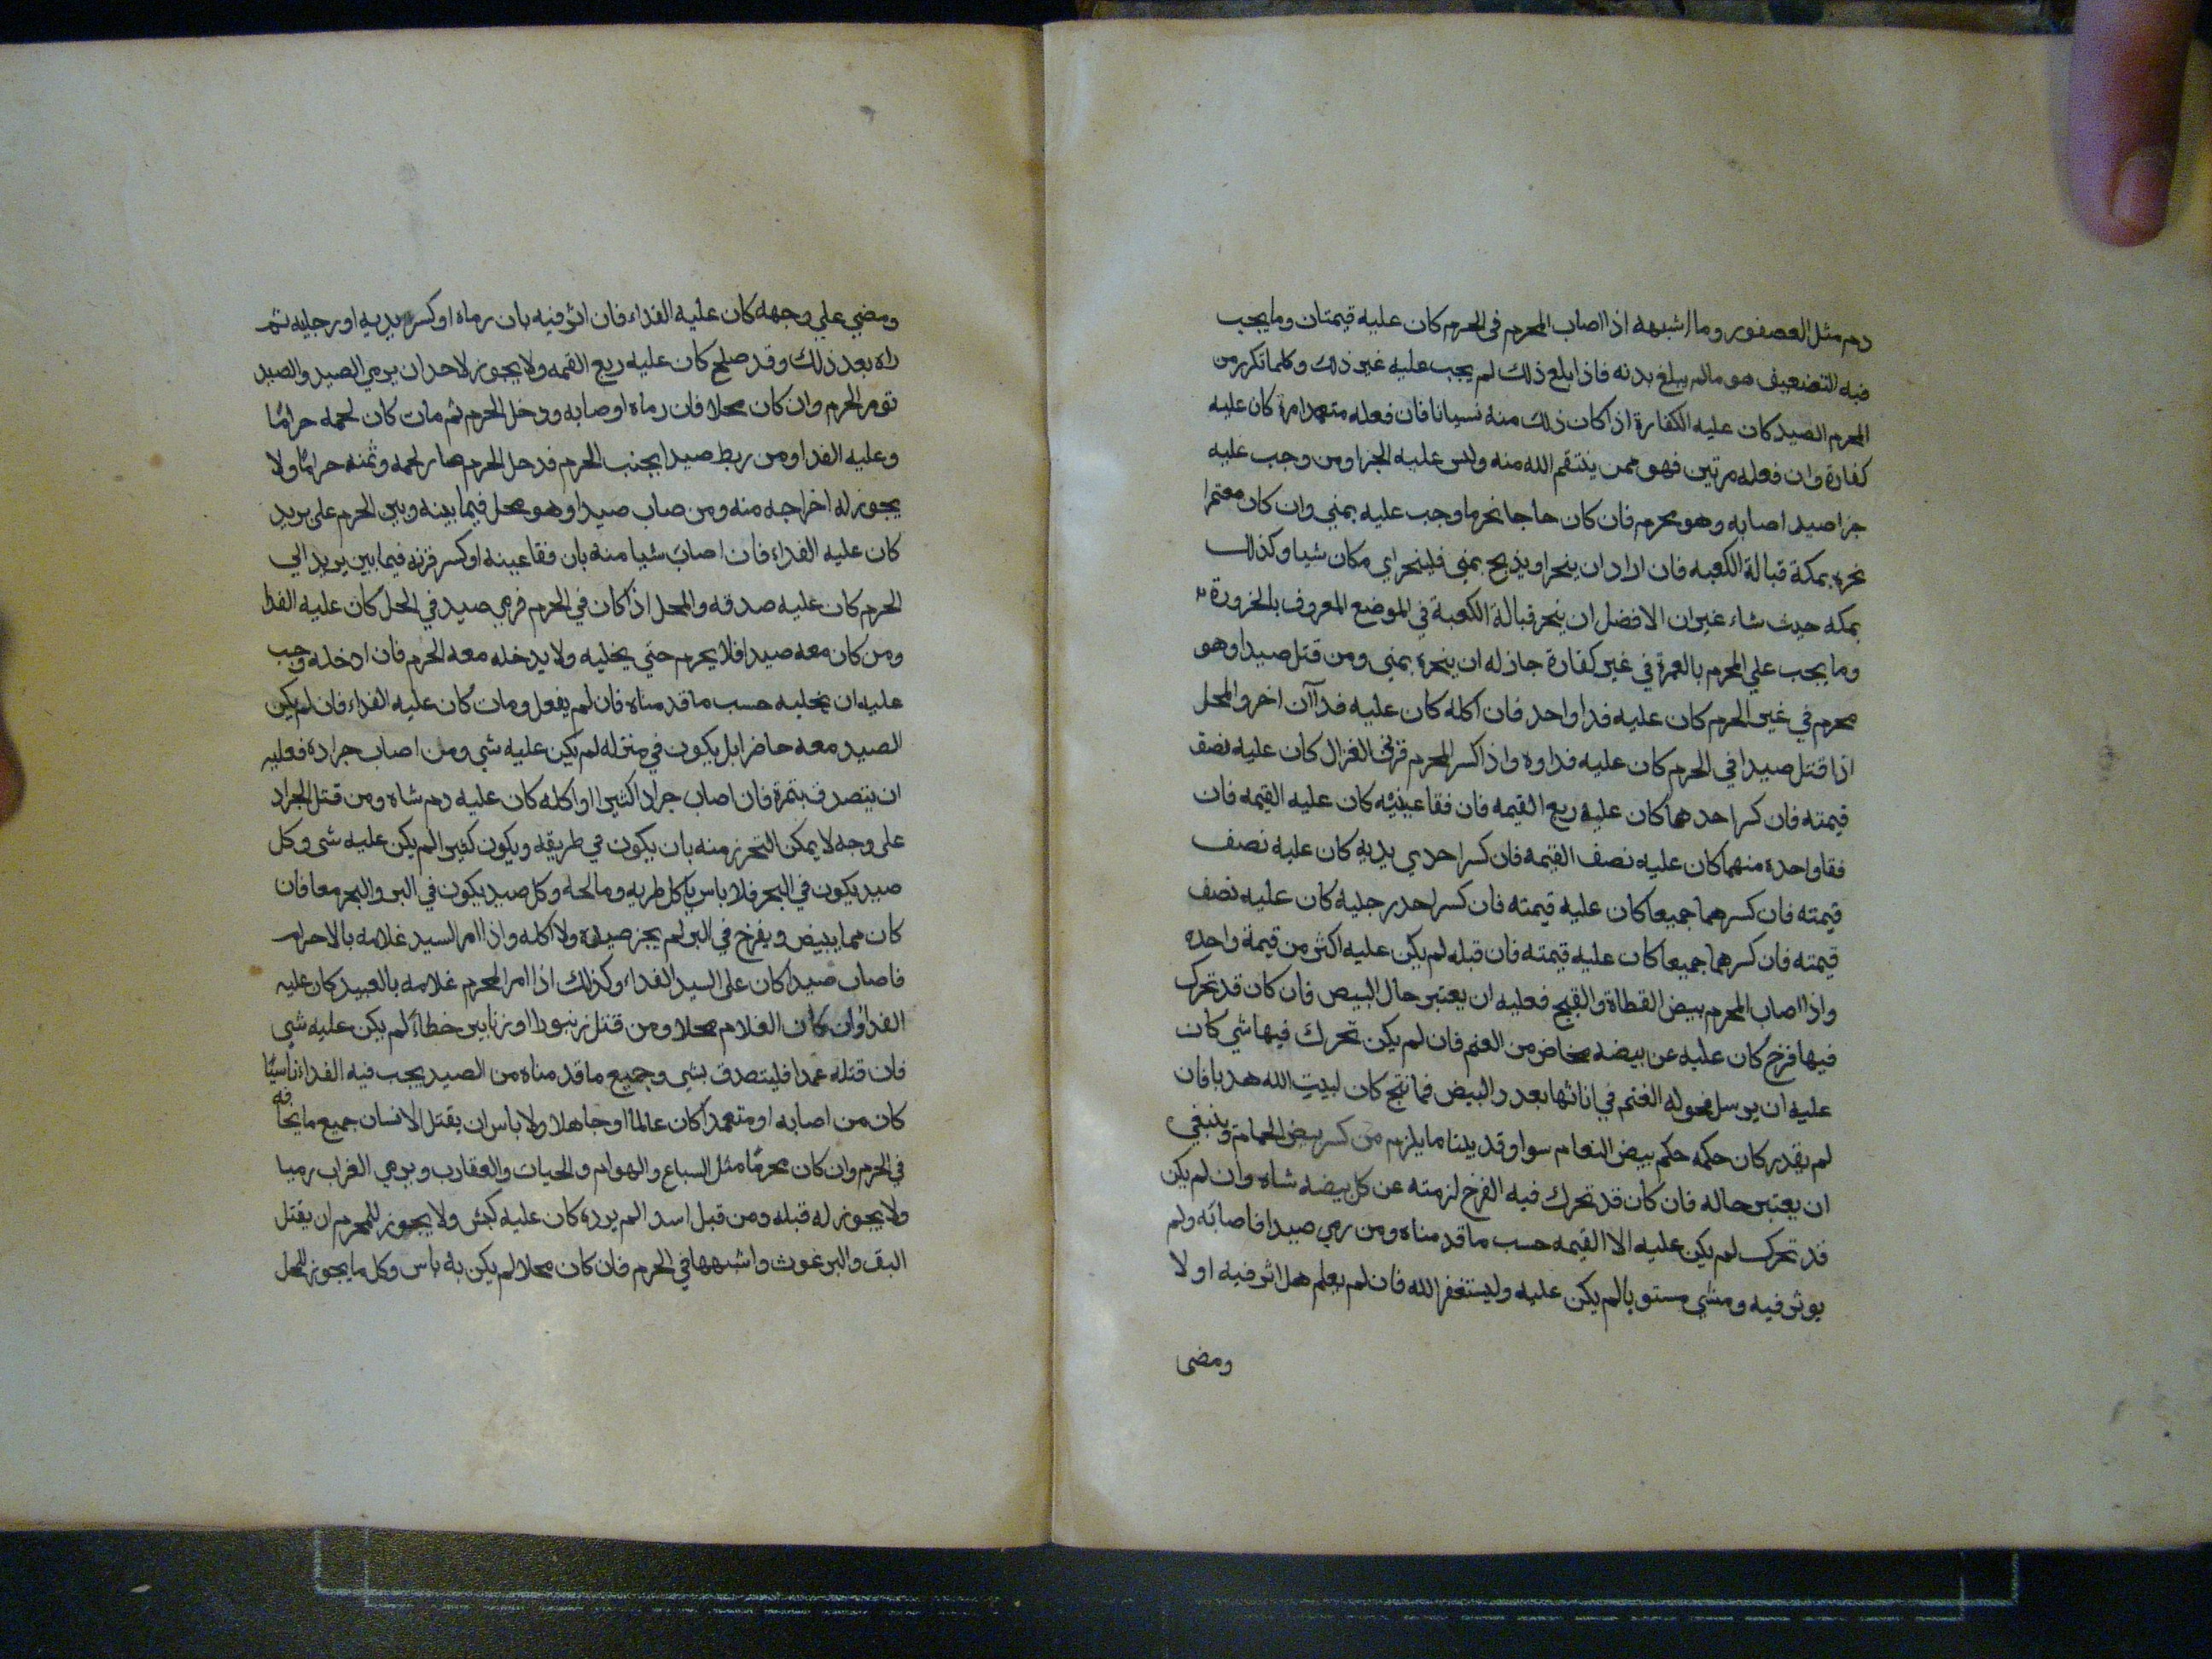 دم مثل العصفور وما اشبهه اذا اصاب المحرم فى الحرم كان عليه قيمتان وما يجب
فيه التضعيف هو مالم يبلغ بدنه فاذا بلغ ذلك لم يجب عليه غير ذلك وكلما تكرر من
المحرم الصيد كان عليه الكفارة اذا كان ذلك منه نسيانا فان فعله متعمدا مرة كان عليه
كفارة وان فعله مرتين فهو ممن ينتقم الله منه وليس عليه الجزا ومن وجب عليه
جزا صيد اصابه وهو محرم فان كان حاجا نحر ما وجب عليه بمنى وان كان معتمرا
نحره بمكة قبالة الكعبه فان اراد ان ينحر او يذبح بمنى فلينحر اي مكان شيا وكذلك
بمكه حيث شاء غير ان الافضل ان ينحر قبالة الكعبة في الموضع المعروف بالخزورة
وما يجب علي المحرم بالعمرة في غير كفارة جاز له ان ينحره بمنى ومن قتل صيدا وهو
محرم في غير الحرم كان عليه فدا واحد فان اكله كان عليه فداآن اخر والمحل
اذا قتل صيدا في الحرم كان عليه فداوه واذا كسر المحرم قرنى الغزال كان عليه نصف
قيمته فان كسر احدهما كان عليه ربع القيمه فان فقا عينيه كان عليه القيمه فان
فقا واحدة منهما كان عليه نصف القيمه فان كسر احدي يديه كان عليه نصف
قيمته فان كسرهما جميعا كان عليه قيمته فان كسر احد رجليه كان عليه نصف
قيمته فان كسرهما جميعا كان عليه قيمته فان قتله لم يكن عليه اكثر من قيمة واحده
واذا اصاب المحرم بيض القطاة والقبج فعليه ان يعتبر حال البيض فان كان قد تحرك
فيها فرخ كان عليه عن بيضه مخاض من الغنم فان لم يكن تحرك فيها شي كان
عليه ان يرسل فحوله الغنم في اناثها بعدد البيض فما نتج كان لبيت الله هديا فان
لم يقدر كان حكمه حكم بيض النعام سوا وقد بينا ما يلزم من كسر بيض الحمامة وينبغي
ان يعتبر حاله فان كان قد تحرك فيه الفرخ لزمته عن كل بيضه شاه وان لم يكن
قد تحرك لم يكن عليه الا القيمه حسب ما قدمناه ومن رمي صيدا فاصابه ولم
يوثر فيه ومشي مستويا لم يكن عليه وليستغفر الله فان لم يعلم هل اثر فيه او لا
ومضى
ومضي علي وجهه كان عليه الفداء فان اثر فيه بان رماه او كسر يديه او رجليه ثم
راه بعد ذلك وقد صلح كان عليه ربع القمه ولا يجوز لاحد ان يرمي الصيد والصيد
توم الحرم وان كان محلا فان رماه او صابه ودخل الحرم ثم مات كان لحمه حراما
وعليه الفدا ومن ربط صيدا بجنب الحرم فدخل الحرم صار لحمه وثمنه حراما ولا
يجوز له اخراجه منه ومن صاب صيدا وهو محل فيما بينه وبين الحرم على بريد
كان عليه الفداء فان اصاب شيا منه بان فقا عينه او كسر قرنه فيما بين بريد الي
الحرم كان عليه صدقه والمحل اذا كان في الحرم فرمى صيد في الحل كان عليه الفدا
ومن كان معه صيدا فلا يحرم حتي يخليه ولا يدخله معه الحرم فان ادخله وجب
عليه ان يخليه حسب ما قدمناه فان لم يفعل ومات كان عليه الفداء فان لم يكن
الصيد معه حاضرا بل يكون في منزله لم يكن عليه شي ومن اصاب جرادة فعليه
ان يتصدق بتمرة فان اصاب جرادا كثيرا او اكله كان عليه دم شاه ومن قتل الجراد
على وجه لا يمكن التحرز منه بان يكون في طريقه ويكون كثيرا لم يكن عليه شي وكل
صيد يكون في البحر فلا باس باكل طريه ومالحه وكل صيد يكون في البر والبحر معا فان
كان مما يبيض ويفرخ في البر لم يجز صيده ولا اكله واذا امر السيد غلامه بالاحرام
فاصاب صيدا كان على السيد الفداء وكذلك اذا امر المحرم غلامه بالصيد كان عليه
الفدا وان كان الغلام محلا ومن قتل زنبورا او زنابير خطاء لم يكن عليه شي
فان قتله عمدا فليتصدق بشي وجميع ما قدمناه من الصيد يجب فيه الفداء ناسيا
كان من اصابه او متعمدا كان عالما او جاهلا ولا باس ان يقتل الانسان جميع ما يخافه
في الحرم وان كان محرما مثل السباع والهوام والحيات والعقارب ويرمي الغراب رميا
ولا يجوز له قتله ومن قبل اسدا لم يرده كان عليه كبش ولا يجوز للمحرم ان يقتل
البق والبرغوث واشبهها في الحرم فان كان محلا لم يكن به باس وكل ما يجوز للمحل